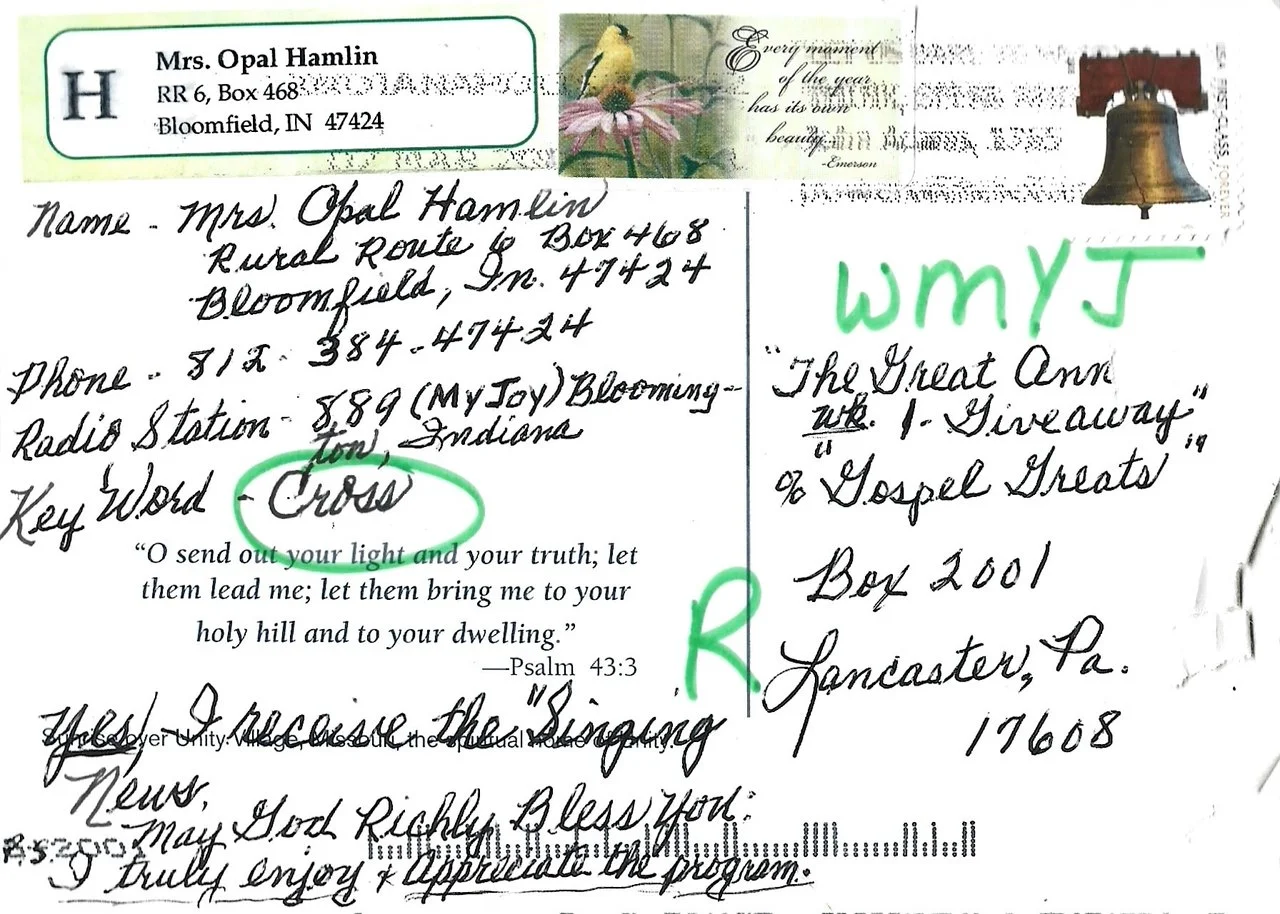 H
Mrs. Opal Hamlin
RR 6, Box 468
Bloomfield, IN 47424
Every moment
of the year
has its own
beauty.
-Emerson
USA FIRST-CLASS FOREVER
Name - Mrs. Opal Hamlin
Rural Route 6 Box 468
Bloomfield, In. 47424
Phone - 812-384-47424
Radio Station - 889 (My Joy) Blooming-
ton, Indiana
Key Word - Cross
"O send out your light and your truth; let
them lead me; let them bring me to your
holy hill and to your dwelling."
—Psalm 43:3
Yes, - I receive the "Singing
Sunrise over Unity Village, Missouri, the spiritual home of Unity.
News.
May God Richly Bless You.
P.S. I truly enjoy & Appreciate the program.
WMYJ
"The Great Ann
wk. 1 - Giveaway"
% "Gospel Greats"
R
Box 2001
Lancaster, Pa.
17608